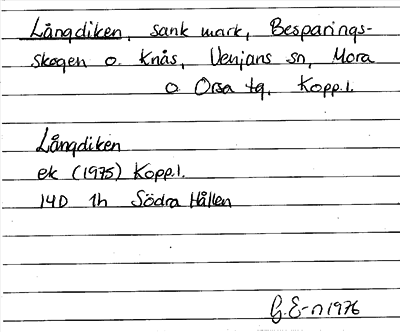 Långdiken, sank mark, Besparings-
skogen o. Knås, Venjans sn, Mora
o. Orsa tg, Kopp.l.
Långdiken
ek (1975) Kopp.l.
14D 1h Södra Hållen
G.E-n 1976